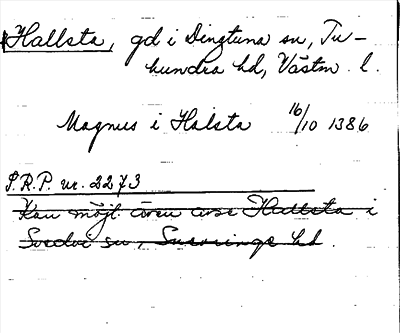 *Hallsta, gd i Dingtuna sn, Tu-
hundra hd, Västm. l.
Magnus i Halsta 16/10 1386
S.R.P. nr. 2273
Kan möjl. även avse Hallsta i
Svedvi sn, Snevringe hd.